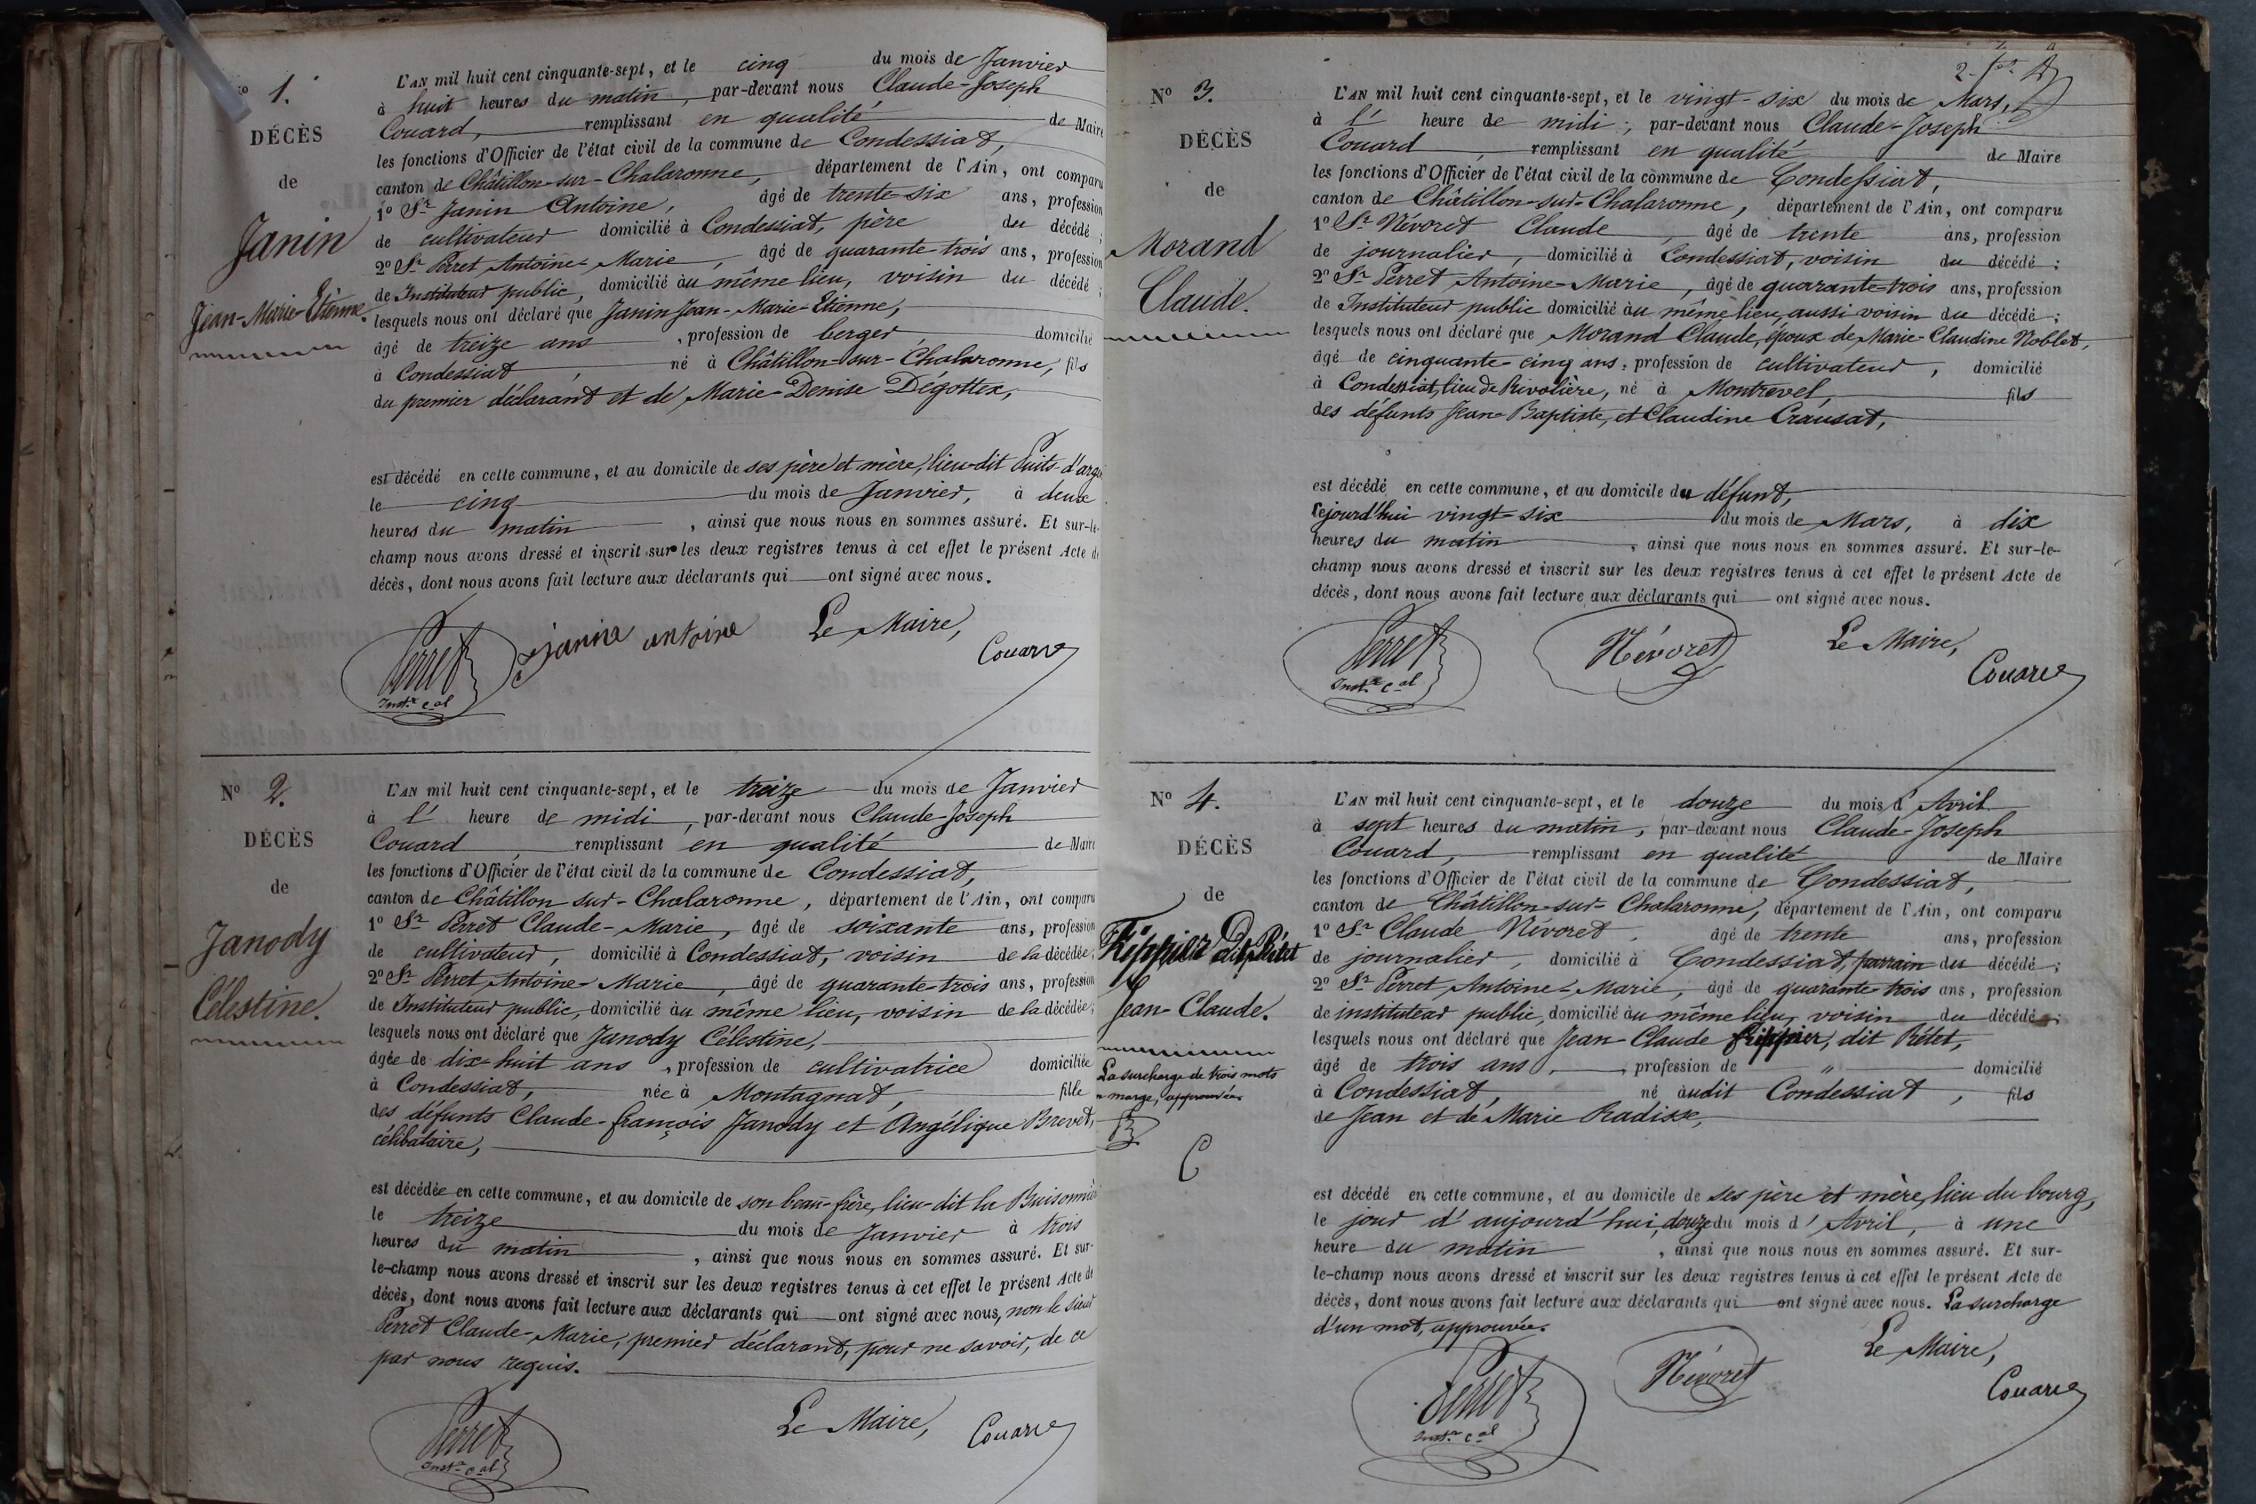 N° 1.
DÉCÈS
de
Janin
Jean-Marie-Etienne.
L'AN mil huit cent cinquante-sept, et le cinq du mois de Janvier
à huit heures du matin, par-devant nous Claude-Joseph
Couard, remplissant en qualité de Maire
les fonctions d'Officier de l'état civil de la commune de Condessiat,
canton de Châtillon-sur-Chalaronne, département de l'Ain, ont comparu
1° Sr Janin Antoine, âgé de trente-six ans, profession
de cultivateur domicilié à Condessiat, père du décédé ;
2° Sr Perret Antoine-Marie, âgé de quarante-trois ans, profession
de Instituteur public, domicilié au même lieu, voisin du décédé ;
lesquels nous ont déclaré que Janin Jean-Marie-Etienne,
âgé de treize ans, profession de berger domicilié
à Condessiat, né à Châtillon-sur-Chalaronne, fils
du premier déclarant et de Marie-Denise Dégottex,
est décédé en cette commune, et au domicile de ses père et mère, lieu-dit Puits-d'arg
le cinq du mois de Janvier, à deux
heures du matin, ainsi que nous nous en sommes assuré. Et sur-le-
champ nous avons dressé et inscrit sur les deux registres tenus à cet effet le présent Acte de
décès, dont nous avons fait lecture aux déclarants qui ont signé avec nous.
Perret
Inst.r c.al
janin antoine
Le Maire,
Couard
N° 2.
DÉCÈS
de
Janody
Célestine.
L'AN mil huit cent cinquante-sept, et le treize du mois de Janvier
à l' heure de midi, par-devant nous Claude-Joseph
Couard, remplissant en qualité de Maire
les fonctions d'Officier de l'état civil de la commune de Condessiat,
canton de Châtillon-sur-Chalaronne, département de l'Ain, ont comparu
1° Sr Perret Claude-Marie, âgé de soixante ans, profession
de cultivateur, domicilié à Condessiat, voisin de la décédée ;
2° Sr Perret Antoine-Marie, âgé de quarante-trois ans, profession
de Instituteur public, domicilié au même lieu, voisin de la décédée ;
lesquels nous ont déclaré que Janody Célestine,
âgée de dix-huit ans, profession de cultivatrice domiciliée
à Condessiat, née à Montagnat, fille
des défunts Claude-françois Janody et Angélique Brevet,
célibataire,
est décédée en cette commune, et au domicile de son beau-frère, lieu-dit la Buisonnière
le treize du mois de Janvier à trois
heures du matin, ainsi que nous nous en sommes assuré. Et sur-
le-champ nous avons dressé et inscrit sur les deux registres tenus à cet effet le présent Acte de
décès, dont nous avons fait lecture aux déclarants qui ont signé avec nous, non le sieur
Perret Claude-Marie, premier déclarant, pour ne savoir, de ce
par nous requis.
Perret
Inst.r c.al
Le Maire,
Couard
N° 3.
DÉCÈS
de
Morand
Claude.
L'AN mil huit cent cinquante-sept, et le vingt-six du mois de Mars,
à l' heure de midi ; par-devant nous Claude-Joseph
Couard, remplissant en qualité de Maire
les fonctions d'Officier de l'état civil de la commune de Condessiat,
canton de Châtillon-sur-Chalaronne, département de l'Ain, ont comparu
1° Sr Névoret Claude, âgé de trente ans, profession
de journalier, domicilié à Condessiat, voisin du décédé ;
2° Sr Perret Antoine-Marie, âgé de quarante-trois ans, profession
de Instituteur public domicilié au même lieu, aussi voisin du décédé ;
lesquels nous ont déclaré que Morand Claude, époux de Marie-Claudine Noblet,
âgé de cinquante-cinq ans, profession de cultivateur, domicilié
à Condessiat, lieu de Rivolière, né à Montrevel, fils
des défunts Jean-Baptiste, et Claudine Crausat,
est décédé en cette commune, et au domicile du défunt,
cejourd'hui vingt-six du mois de Mars, à dix
heures du matin, ainsi que nous nous en sommes assuré. Et sur-le-
champ nous avons dressé et inscrit sur les deux registres tenus à cet effet le présent Acte de
décès, dont nous avons fait lecture aux déclarants qui ont signé avec nous.
Perret
Inst.r c.al
Névoret
Le Maire,
Couard
N° 4.
DÉCÈS
de
Frippier Dit Pétet
Jean-Claude.
La surcharge de trois mots
en marge, approuvée.
C
L'AN mil huit cent cinquante-sept, et le douze du mois d'Avril
à sept heures du matin, par-devant nous Claude-Joseph
Couard, remplissant en qualité de Maire
les fonctions d'Officier de l'état civil de la commune de Condessiat,
canton de Châtillon-sur-Chalaronne, département de l'Ain, ont comparu
1° Sr Claude Névoret, âgé de trente ans, profession
de journalier, domicilié à Condessiat, parrain du décédé ;
2° Sr Perret Antoine-Marie, âgé de quarante-trois ans, profession
de instituteur public, domicilié au même lieu, voisin du décédé ;
lesquels nous ont déclaré que Jean-Claude frippier, dit Pétet,
âgé de trois ans, profession de " domicilié
à Condessiat, né audit Condessiat, fils
de Jean et de Marie Radix,
est décédé en cette commune, et au domicile de ses père et mère, lieu du bourg,
le jour d'aujourd'hui, douze du mois d'Avril, à une
heure du matin, ainsi que nous nous en sommes assuré. Et sur-
le-champ nous avons dressé et inscrit sur les deux registres tenus à cet effet le présent Acte de
décès, dont nous avons fait lecture aux déclarants qui ont signé avec nous. La surcharge
d'un mot, approuvée.
Perret
Inst.r c.al
Névoret
Le Maire,
Couard